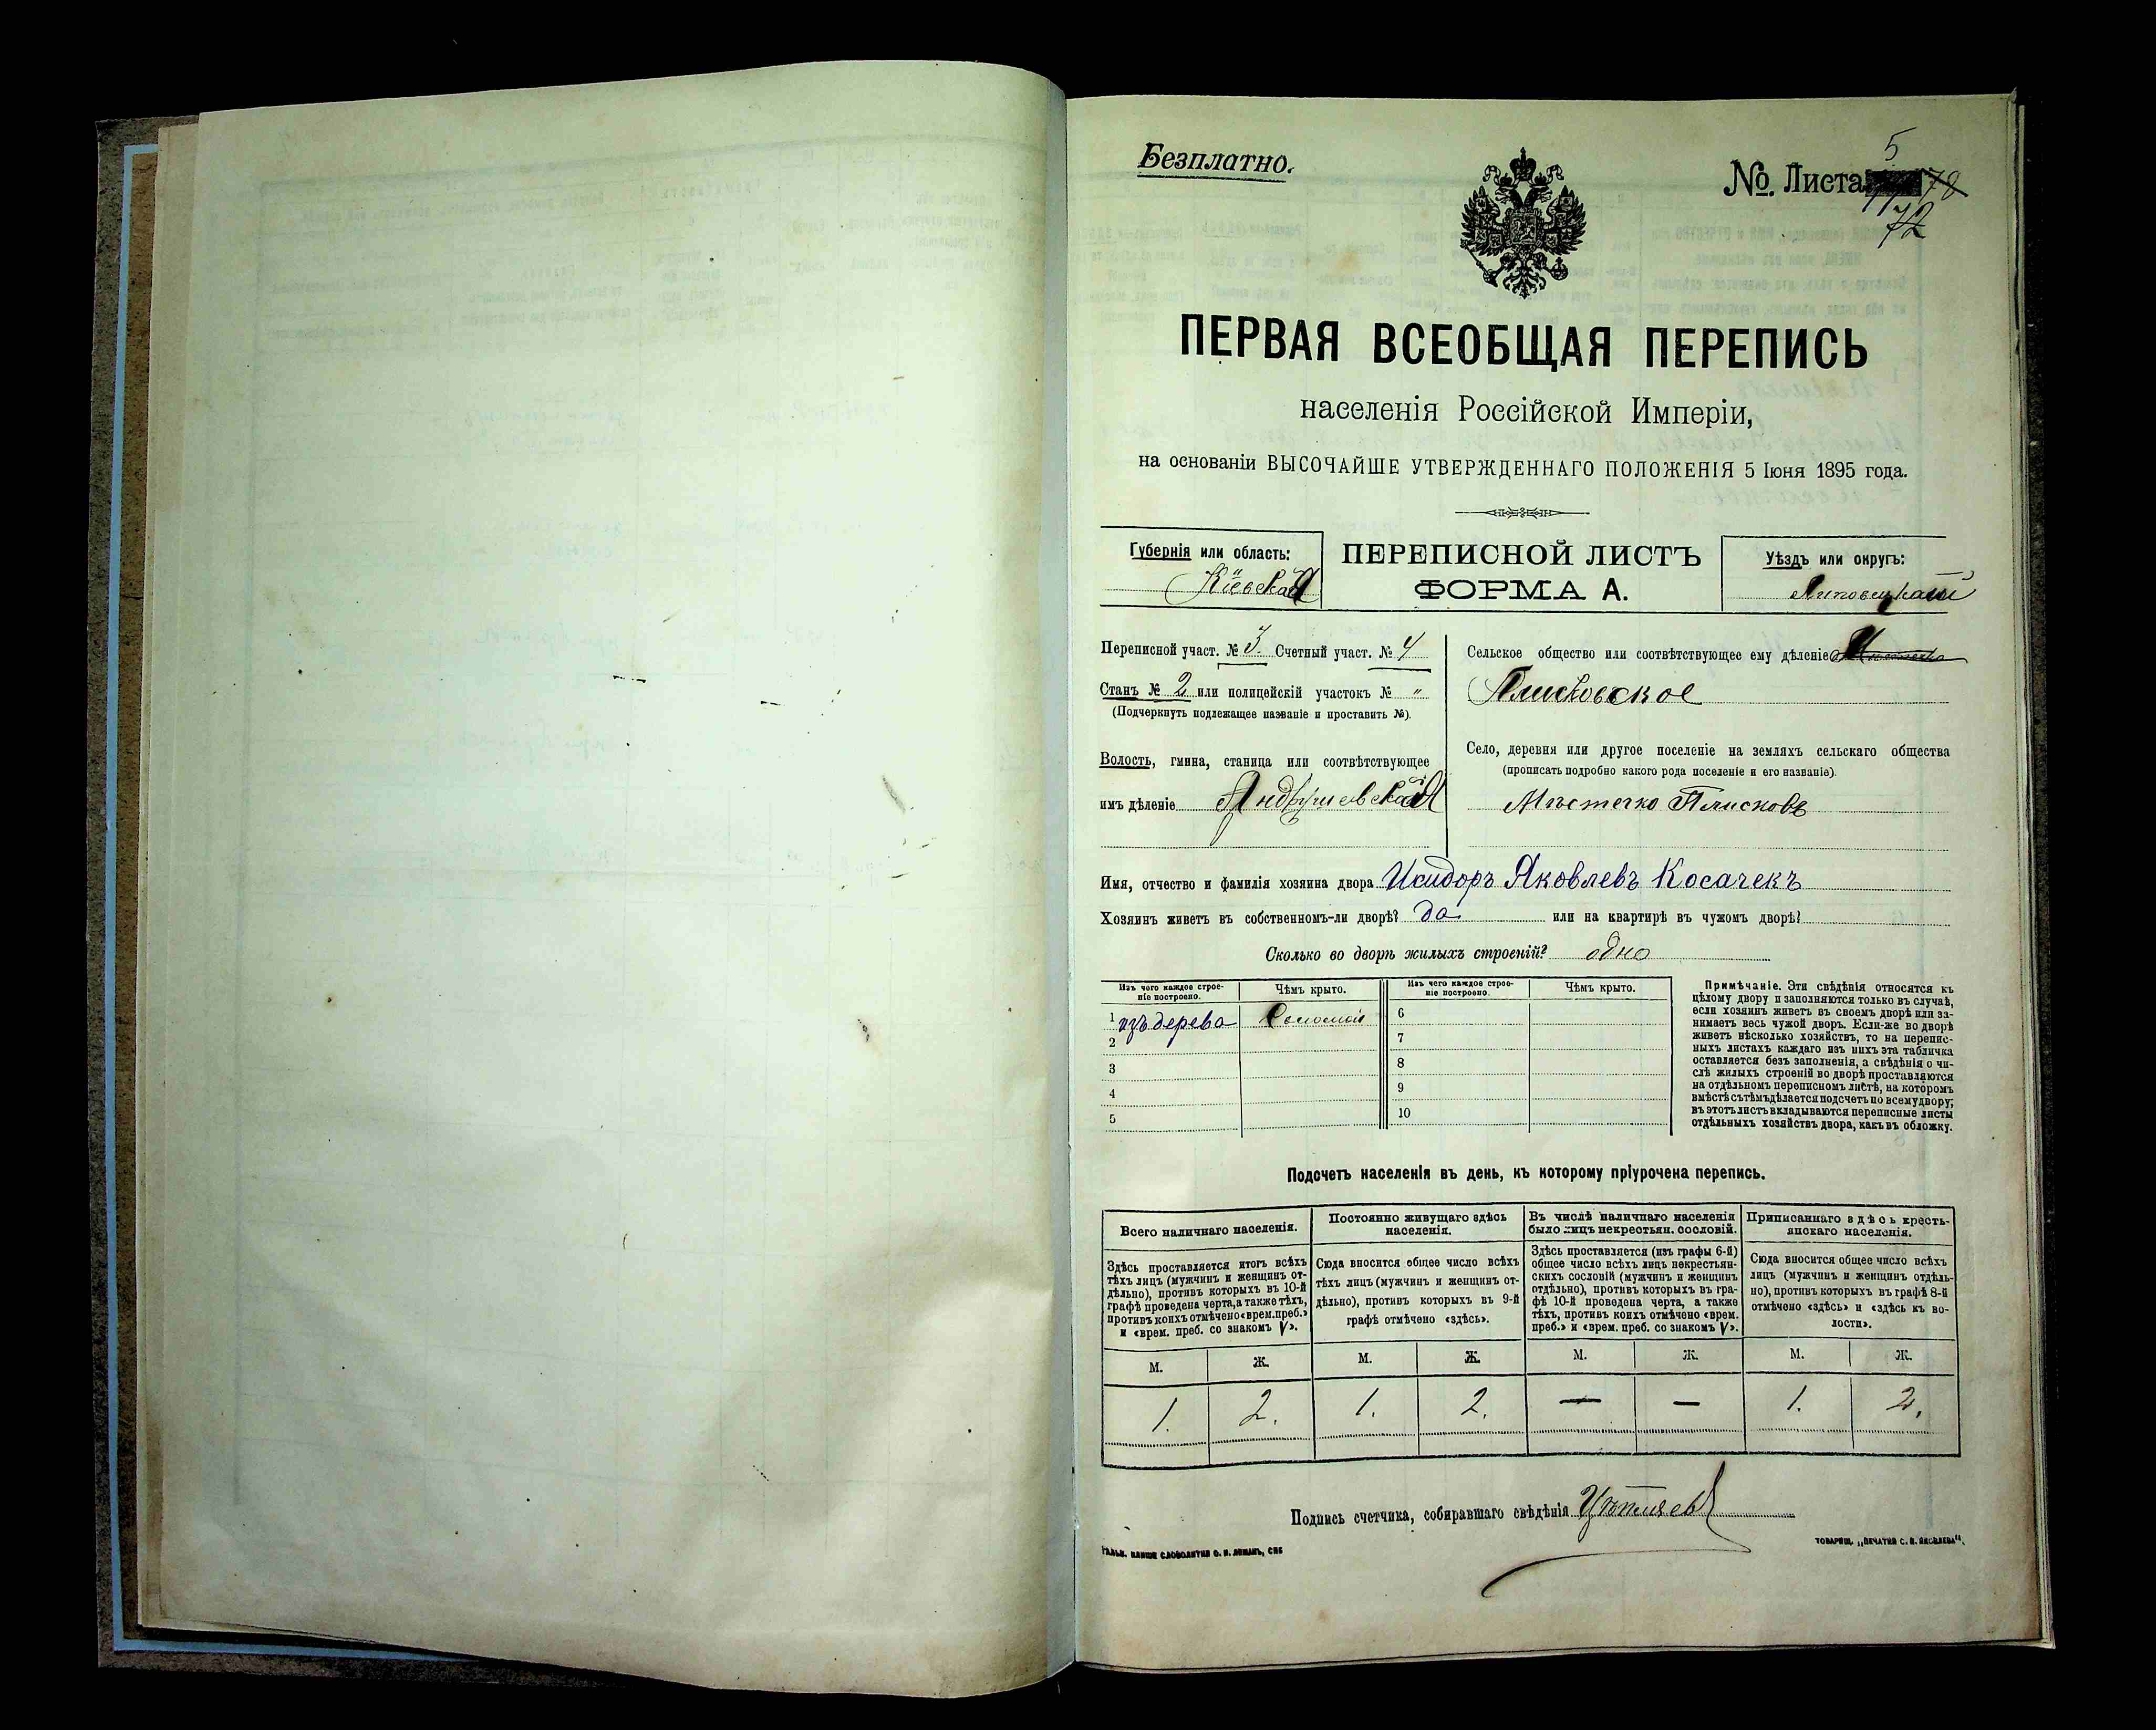 Безплатно.
5
№. Листа 78
72
ПЕРВАЯ ВСЕОБЩАЯ ПЕРЕПИСЬ
населенія Россійской Имперіи,
на основаніи ВЫСОЧАЙШЕ УТВЕРЖДЕННАГО ПОЛОЖЕНІЯ 5 Іюня 1895 года.
Губернія или область:
Кіевская
ПЕРЕПИСНОЙ ЛИСТЪ
ФОРМА А.
Уѣздъ или округъ:
Липовецкій
Переписной участ. № 3. Счетный участ. № 4
Станъ № 2 или полицейскій участокъ № "
(Подчеркнуть подлежащее названіе и проставить №).
Волость, гмина, станица или соотвѣтствующее
имъ дѣленіе Андрушевская
Сельское общество или соотвѣтствующее ему дѣленіе
Плисковское
Село, деревня или другое поселеніе на земляхъ сельскаго общества
(прописать подробно какого рода поселеніе и его названіе).
Мѣстечко Плисковъ
Имя, отчество и фамилія хозяина двора Исидоръ Яковлевъ Косачекъ
Хозяинъ живетъ въ собственномъ-ли дворѣ? да или на квартирѣ въ чужомъ дворѣ?
Сколько во дворѣ жилыхъ строеній? одно
Изъ чего каждое строе-
ніе построено.
Чѣмъ крыто.
Изъ чего каждое строе-
ніе построено.
Чѣмъ крыто.
1 изъ дерева Соломой 6
2 7
3 8
4 9
5 10
Примѣчаніе. Эти свѣдѣнія относятся къ
цѣлому двору и заполняются только въ случаѣ,
если хозяинъ живетъ въ своемъ дворѣ или за-
нимаетъ весь чужой дворъ. Если-же во дворѣ
живетъ нѣсколько хозяйствъ, то на перепис-
ныхъ листахъ каждаго изъ нихъ эта табличка
оставляется безъ заполненія, а свѣдѣнія о чи-
слѣ жилыхъ строеній во дворѣ проставляются
на отдѣльномъ переписномъ листѣ, на которомъ
вмѣстѣ съ тѣмъ дѣлается подсчетъ по всему двору;
въ этотъ листъ вкладываются переписные листы
отдѣльныхъ хозяйствъ двора, какъ въ обложку.
Подсчетъ населенія въ день, къ которому пріурочена перепись.
Всего наличнаго населенія.
Здѣсь проставляется итогъ всѣхъ
тѣхъ лицъ (мужчинъ и женщинъ от-
дѣльно), противъ которыхъ въ 10-й
графѣ проведена черта, а также тѣхъ,
противъ коихъ отмѣчено «врем. преб.»
и «врем. преб. со знакомъ V».
Постоянно живущаго здѣсь
населенія.
Сюда вносится общее число всѣхъ
тѣхъ лицъ (мужчинъ и женщинъ от-
дѣльно), противъ которыхъ въ 9-й
графѣ отмѣчено «здѣсь».
Въ числѣ наличнаго населенія
было лицъ некрестьян. сословій.
Здѣсь проставляется (изъ графы 6-й)
общее число всѣхъ лицъ некрестьян-
скихъ сословій (мужчинъ и женщинъ
отдѣльно), противъ которыхъ въ гра-
фѣ 10-й проведена черта, а также
тѣхъ, противъ коихъ отмѣчено «врем.
преб.» и «врем. преб. со знакомъ V».
Приписаннаго здѣсь кресть-
янскаго населенія.
Сюда вносится общее число всѣхъ
лицъ (мужчинъ и женщинъ отдѣль-
но), противъ которыхъ въ графѣ 8-й
отмѣчено «здѣсь» и «здѣсь къ во-
лости».
М. Ж. М. Ж. М. Ж. М. Ж.
1. 2. 1. 2. — — 1. 2.
Подпись счетчика, собиравшаго свѣдѣнія
ТОВАРИЩ. „ПЕЧАТНЯ С. П. ЯКОВЛЕВА".